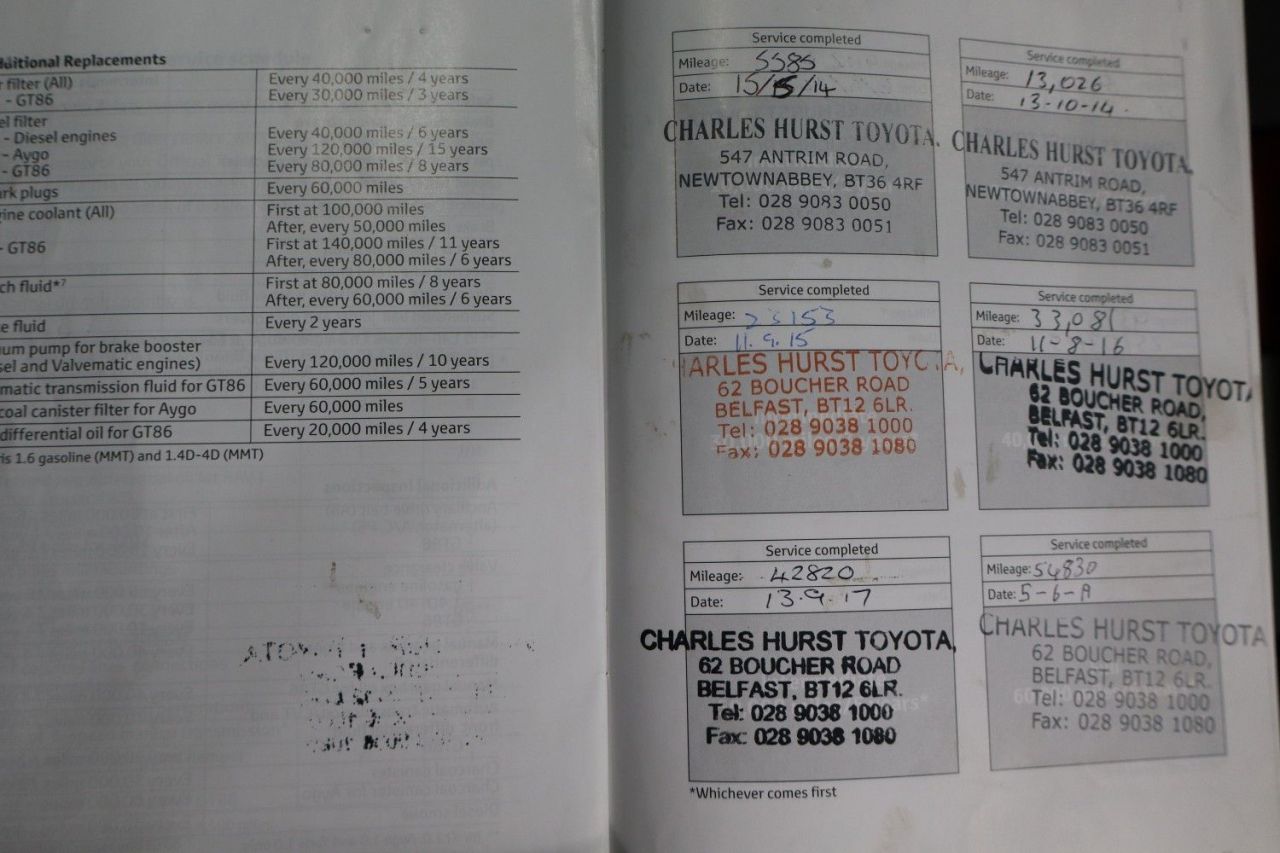 dditional Replacements
r filter (All) Every 40,000 miles / 4 years
- GT86 Every 30,000 miles / 3 years
el filter
- Diesel engines Every 40,000 miles / 6 years
- Aygo Every 120,000 miles / 15 years
- GT86 Every 80,000 miles / 8 years
rk plugs Every 60,000 miles
ine coolant (All) First at 100,000 miles
After, every 50,000 miles
- GT86 First at 140,000 miles / 11 years
After, every 80,000 miles / 6 years
ch fluid*7 First at 80,000 miles / 8 years
After, every 60,000 miles / 6 years
e fluid Every 2 years
um pump for brake booster
sel and Valvematic engines) Every 120,000 miles / 10 years
matic transmission fluid for GT86 Every 60,000 miles / 5 years
coal canister filter for Aygo Every 60,000 miles
differential oil for GT86 Every 20,000 miles / 4 years
is 1.6 gasoline (MMT) and 1.4D-4D (MMT)
Service completed
Mileage: 5585
Date: 15/5/14
CHARLES HURST TOYOTA.
547 ANTRIM ROAD,
NEWTOWNABBEY, BT36 4RF
Tel: 028 9083 0050
Fax: 028 9083 0051
Service completed
Mileage: 13,026
Date: 13-10-14.
CHARLES HURST TOYOTA.
547 ANTRIM ROAD,
NEWTOWNABBEY, BT36 4RF
Tel: 028 9083 0050
Fax: 028 9083 0051
Service completed
Mileage: 23153
Date: 11.9.15
HARLES HURST TOYO A,
62 BOUCHER ROAD
BELFAST, BT12 6LR.
Tel: 028 9038 1000
Fax: 028 9038 1080
Service completed
Mileage: 33,081
Date: 11-8-16
CHARLES HURST TOYOTA
62 BOUCHER ROAD,
BELFAST, BT12 6LR.
Tel: 028 9038 1000
Fax: 028 9038 1080
Service completed
Mileage: 42820
Date: 13.9.17
CHARLES HURST TOYOTA,
62 BOUCHER ROAD
BELFAST, BT12 6LR.
Tel: 028 9038 1000
Fax: 028 9038 1080
Service completed
Mileage: 54830
Date: 5-6-19
CHARLES HURST TOYOTA
62 BOUCHER ROAD,
BELFAST, BT12 6LR.
Tel: 028 9038 1000
Fax: 028 9038 1080
*Whichever comes first